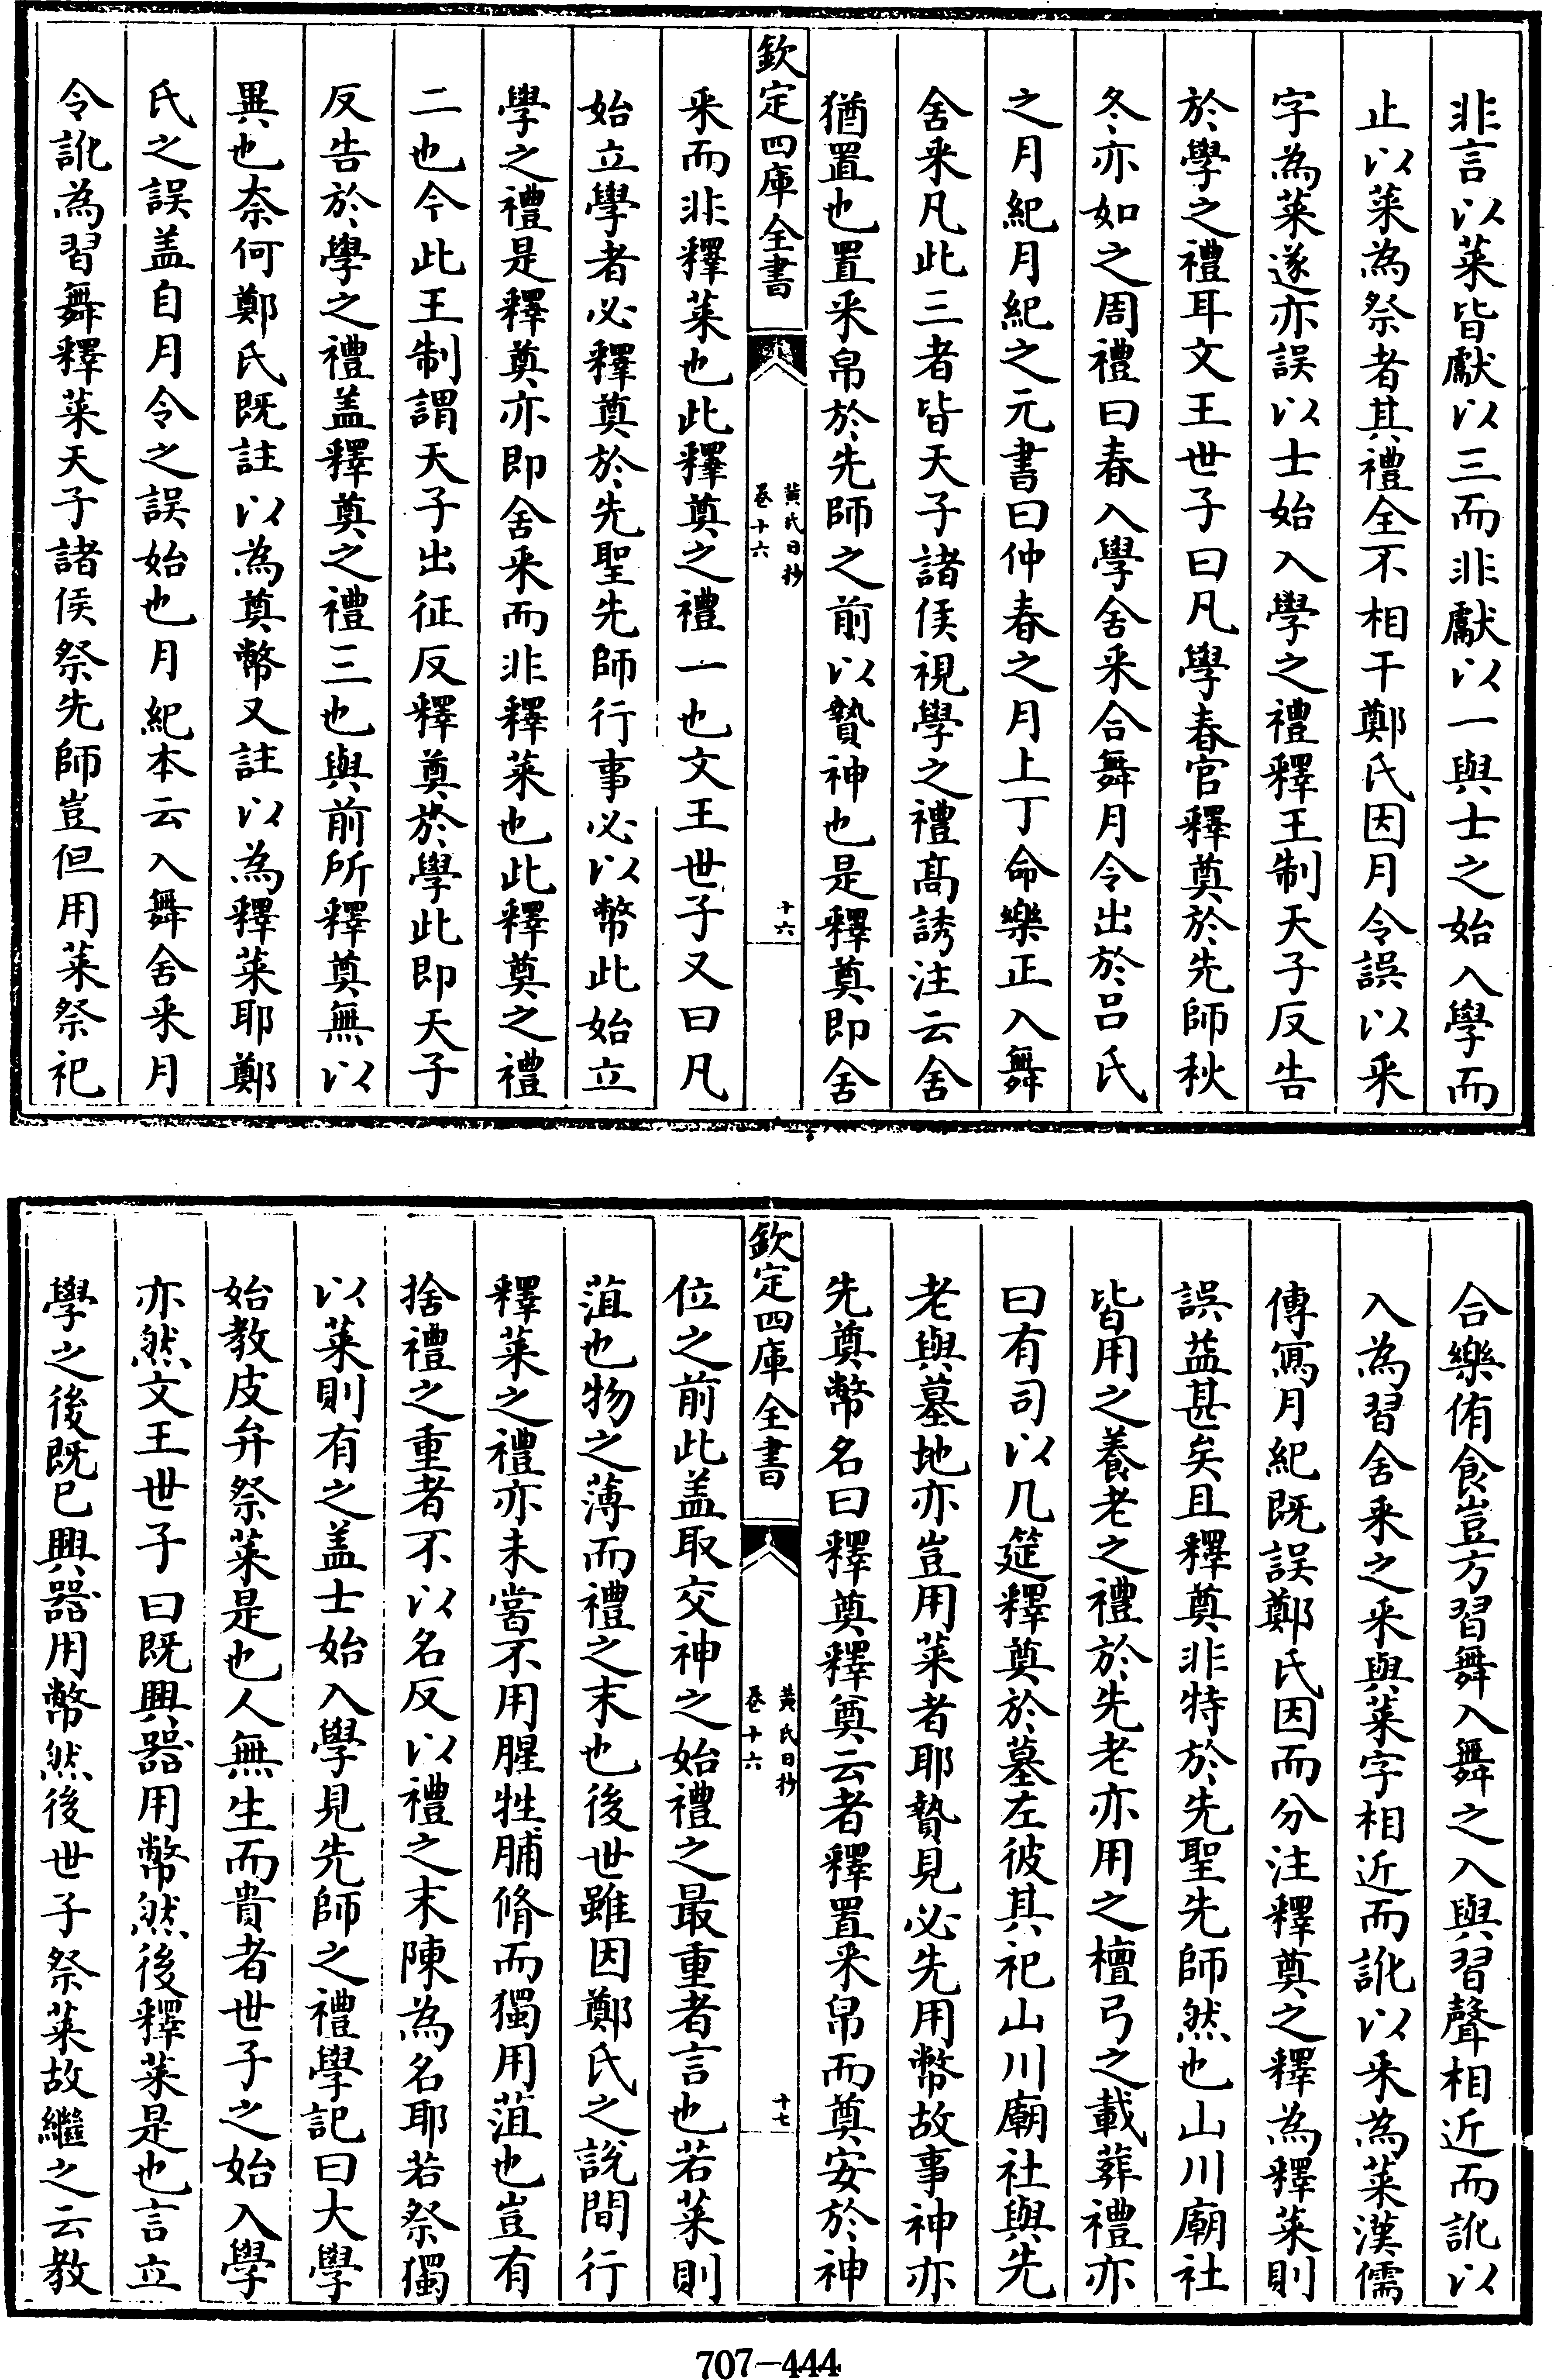 非言以菜皆獻以三而非獻以一與士之始入學而
止以菜為祭者其禮全不相干鄭氏因月令誤以釆
字為菜遂亦誤以士始入學之禮釋王制天子反告
於學之禮耳文王世子曰凡學春官釋奠於先師秋
冬亦如之周禮曰春入學舍釆合舞月令出於吕氏
之月紀月紀之元書曰仲春之月上丁命樂正入舞
舍釆凡此三者皆天子諸侯視學之禮髙誘注云舍
猶置也置釆帛於先師之前以贄神也是釋奠即舍
欽定四庫全書
黄氏日抄
卷十六
十六
釆而非釋菜也此釋奠之禮一也文王世子又曰凡
始立學者必釋奠於先聖先師行事必以幣此始立
學之禮是釋奠亦即舍釆而非釋菜也此釋奠之禮
二也今此王制謂天子出征反釋奠於學此即天子
反告於學之禮盖釋奠之禮三也與前所釋奠無以
異也柰何鄭氏既註以為奠幣又註以為釋菜耶鄭
氏之誤盖自月令之誤始也月紀本云入舞舍釆月
令訛為習舞釋菜天子諸侯祭先師豈但用菜祭祀
合樂侑食豈方習舞入舞之入與習聲相近而訛以
入為習舍釆之釆與菜字相近而訛以釆為菜漢儒
傳寫月紀既誤鄭氏因而分注釋奠之釋為釋菜則
誤益甚矣且釋奠非特於先聖先師然也山川廟社
皆用之養老之禮於先老亦用之檀弓之載葬禮亦
曰有司以几筵釋奠於墓左彼其祀山川廟社與先
老與墓地亦豈用菜者耶贄見必先用幣故事神亦
先奠幣名曰釋奠釋奠云者釋置釆帛而奠安於神
欽定四庫全書
黄氏日抄
卷十六
十七
位之前此盖取交神之始禮之最重者言也若菜則
菹也物之薄而禮之末也後世雖因鄭氏之說間行
釋菜之禮亦未嘗不用腥牲脯脩而獨用菹也豈有
捨禮之重者不以名反以禮之末陳為名耶若祭獨
以菜則有之盖士始入學見先師之禮學記曰大學
始教皮弁祭菜是也人無生而貴者世子之始入學
亦然文王世子曰既興器用幣然後釋菜是也言立
學之後既已興器用幣然後世子祭菜故繼之云教
707-444